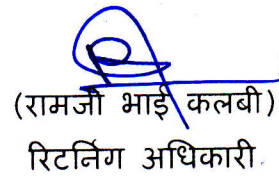 (रामजी भाई कलबी)
रिटर्निंग अधिकारी